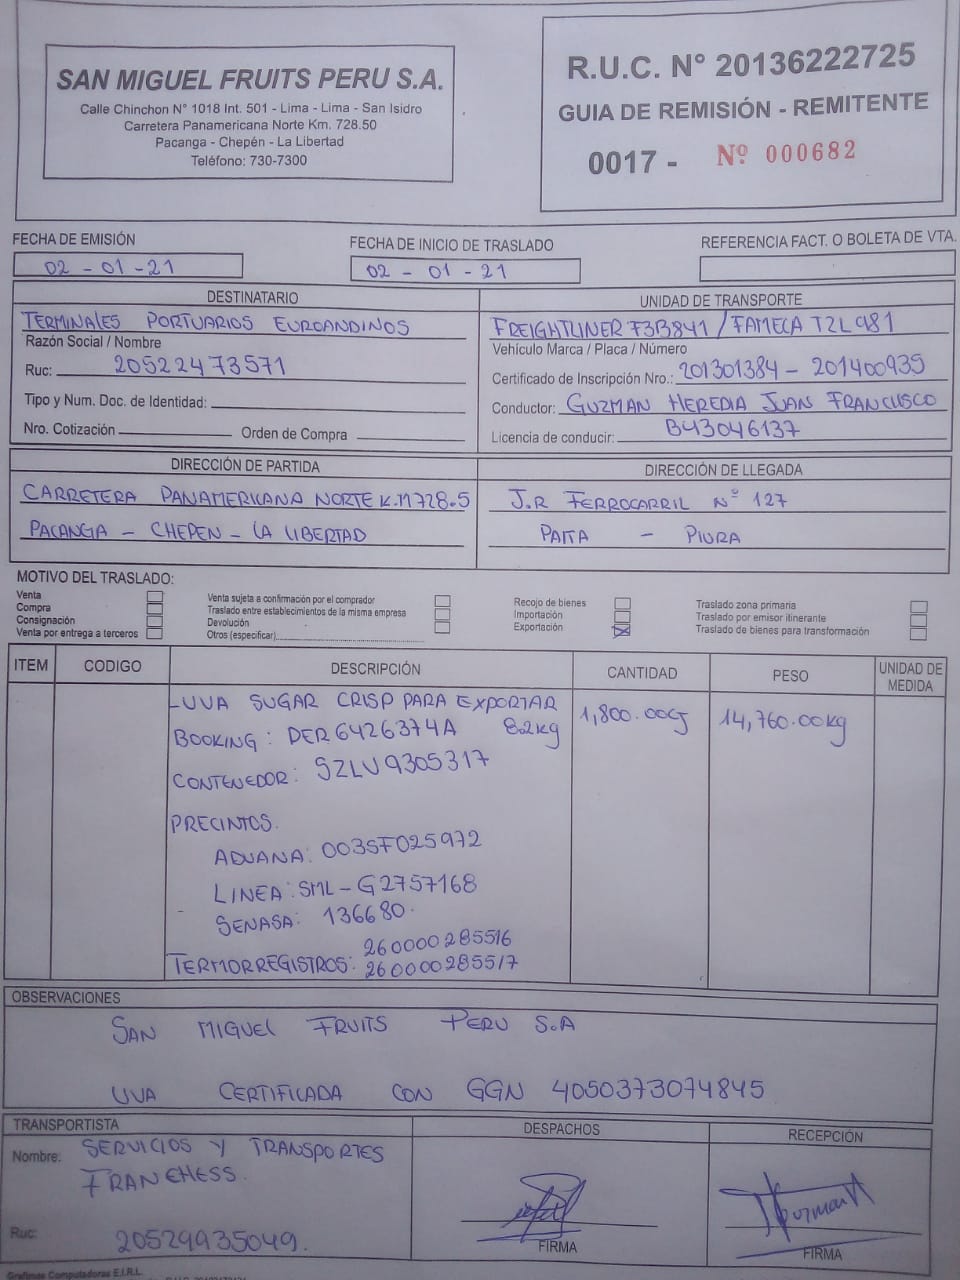 SAN MIGUEL FRUITS PERU S.A.
Calle Chinchon N° 1018 Int. 501 - Lima - Lima - San Isidro
Carretera Panamericana Norte Km. 728.50
Pacanga - Chepén - La Libertad
Teléfono: 730-7300
R.U.C. N° 20136222725
GUIA DE REMISIÓN - REMITENTE
0017 - Nº 000682
FECHA DE EMISIÓN
02 - 01 - 21
FECHA DE INICIO DE TRASLADO
02 - 01 - 21
REFERENCIA FACT. O BOLETA DE VTA.
DESTINATARIO
TERMINALES PORTUARIOS EUROANDINOS
Razón Social / Nombre
Ruc: 20522473571
Tipo y Num. Doc. de Identidad:
Nro. Cotización Orden de Compra
UNIDAD DE TRANSPORTE
FREIGHTLINER F3B841 / FAMECA T2L981
Vehículo Marca / Placa / Número
Certificado de Inscripción Nro.: 201301384 - 201400935
Conductor: GUZMAN HEREDIA JUAN FRANCISCO
Licencia de conducir: B43046137
DIRECCIÓN DE PARTIDA
CARRETERA PANAMERICANA NORTE K.M 728.5
PACANGA - CHEPEN - LA LIBERTAD
DIRECCIÓN DE LLEGADA
J.R FERROCARRIL Nº 127
PAITA - PIURA
MOTIVO DEL TRASLADO:
Venta
Compra
Consignación
Venta por entrega a terceros
Venta sujeta a confirmación por el comprador
Traslado entre establecimientos de la misma empresa
Devolución
Otros (especificar)
Recojo de bienes
Importación
Exportación
Traslado zona primaria
Traslado por emisor itinerante
Traslado de bienes para transformación
ITEM CODIGO DESCRIPCIÓN CANTIDAD PESO UNIDAD DE MEDIDA
- UVA SUGAR CRISP PARA EXPORTAR 1,800.00CJ 14,760.00kg
BOOKING: DER6426374A 8.2kg
CONTENEDOR: SZLU9305317
PRECINTOS.
ADUANA: 003SF025972
LINEA: SML-G2757168
SENASA: 136680.
TERMORREGISTROS: 260000285516
260000285517
OBSERVACIONES
SAN MIGUEL FRUITS PERU S.A
UVA CERTIFICADA CON GGN 4050373074845
TRANSPORTISTA
Nombre: SERVICIOS Y TRANSPORTES
FRANCHESS.
Ruc: 20529935049.
DESPACHOS
FIRMA
RECEPCIÓN
FIRMA
Grafimas Computadoras E.I.R.L.